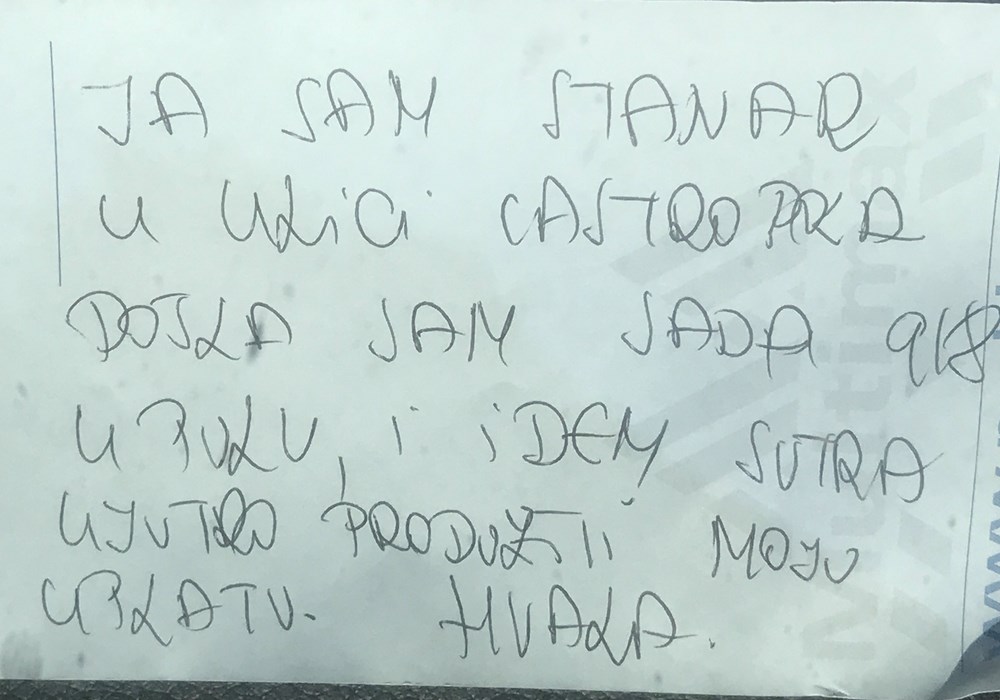 JA SAM STANAR
U ULICI CASTROPOLA
DOŠLA SAM SADA 9/8
U PULU, I IDEM SUTRA
UJUTRO PRODUŽITI MOJU
UPLATU. HVALA.